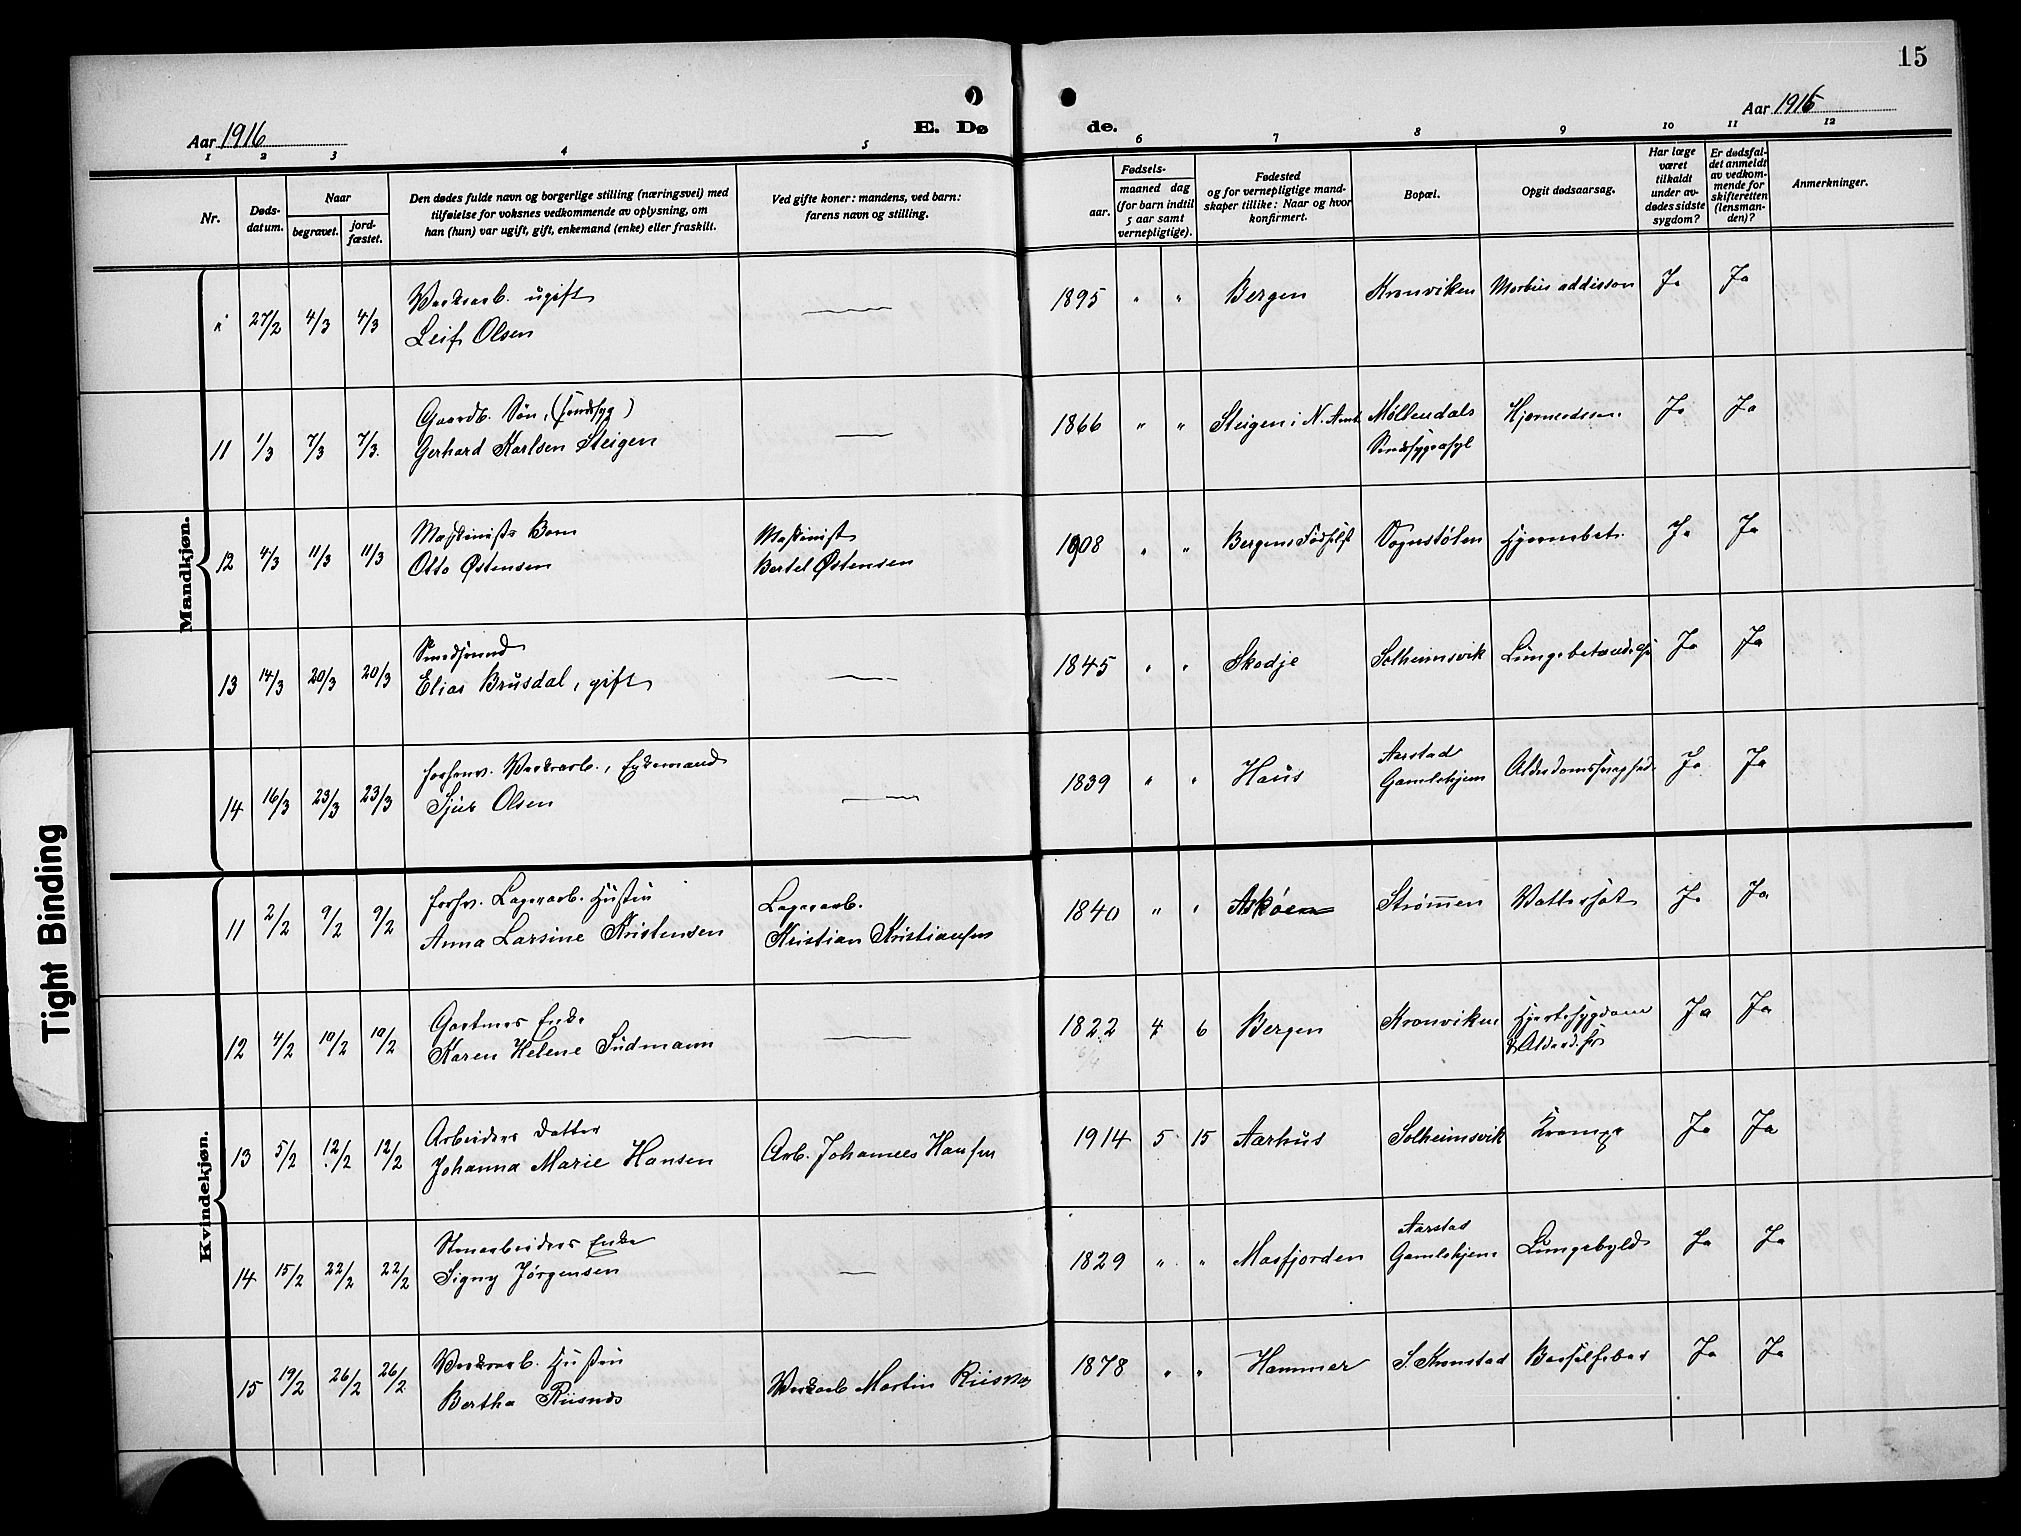 15
Aar 1916
E. Dø
de.
Aar 1916
1 2 3 4 5 6 7 8 9 10 11 12
Nr.
Døds-
datum.
Naar
begravet.
jord-
fæstet.
Den dødes fulde navn og borgerlige stilling (næringsvei) med
tilføielse for voksnes vedkommende av oplysning, om
han (hun) var ugift, gift, enkemand (enke) eller fraskilt.
Ved gifte koner: mandens, ved barn:
farens navn og stilling.
Fødsels-
aar.
maaned dag
(for barn indtil
5 aar samt
vernepligtige).
Fødested
og for vernepligtige mand-
skaper tillike: Naar og hvor
konfirmert.
Bopæl.
Opgit dødsaarsag.
Har læge
været
tilkaldt
under av-
dødes sidste
sygdom?
Er dødsfal-
det anmeldt
av vedkom-
mende for
skifteretten
(lensman-
den)?
Anmerkninger.
Mandkjøn.
27/2 4/3 4/3 Verksarb. ugift
Leif Olsen
1895 " " Bergen Kronviken Morbus addisson Ja Ja
11 1/3 7/3 7/3. Gaardb. Søn, (sindssyg)
Gerhard Karlsen Steigen
1866 " " Steigen i N. Amt Møllendals
Sindssygeasyl Ja Ja
12 4/3 11/3 11/3 Maskinists Barn
Otto Østensen
Maskinist
Bertel Østensen
1908 " " Bergens Fødselsst Vognstølen Hjernebet. Ja Ja
13 14/3 20/3 20/3 Smedsvend
Elias Brusdal, gift
1845 " " Skodje Solheimsvik Lungebetændelse Ja Ja
14 16/3 23/3 23/3 forhenv. Verksarb., Enkemand
Sjur Olsen
1839 " " Haus Aarstad
Gamlehjem Ja Ja
Kvindekjøn.
11 2/2 9/2 9/2 forhv. Lagerarb. Hustru
Anna Larsine Kristensen
Lagerarb.
Kristian Kristiansen
1840 " " Askøen Strømmen Vattersot Ja Ja
12 4/2 10/2 10/2 Gartners Enke
Karen Helene Sudmann
1822 4 6 Bergen Kronviken Hjertesygdom Ja Ja
13 5/2 12/2 12/2 Arbeiders Datter
Johanna Marie Hansen
Arb. Johannes Hansen
1914 5 15 Aarhus Solheimsvik Krampe Ja Ja
14 15/2 22/2 22/2 Stenarbeiders Enke
Signy Jørgensen
1829 " " Masfjorden Aarstad
Gamlehjem Lungebyld Ja Ja
15 19/2 26/2 26/2 Verksarb. Hustru
Bertha Riisnes
Verksarb Martin Riisnes
1878 " " Hammer S. Kronstad Barselfeber Ja Ja
Tight Binding